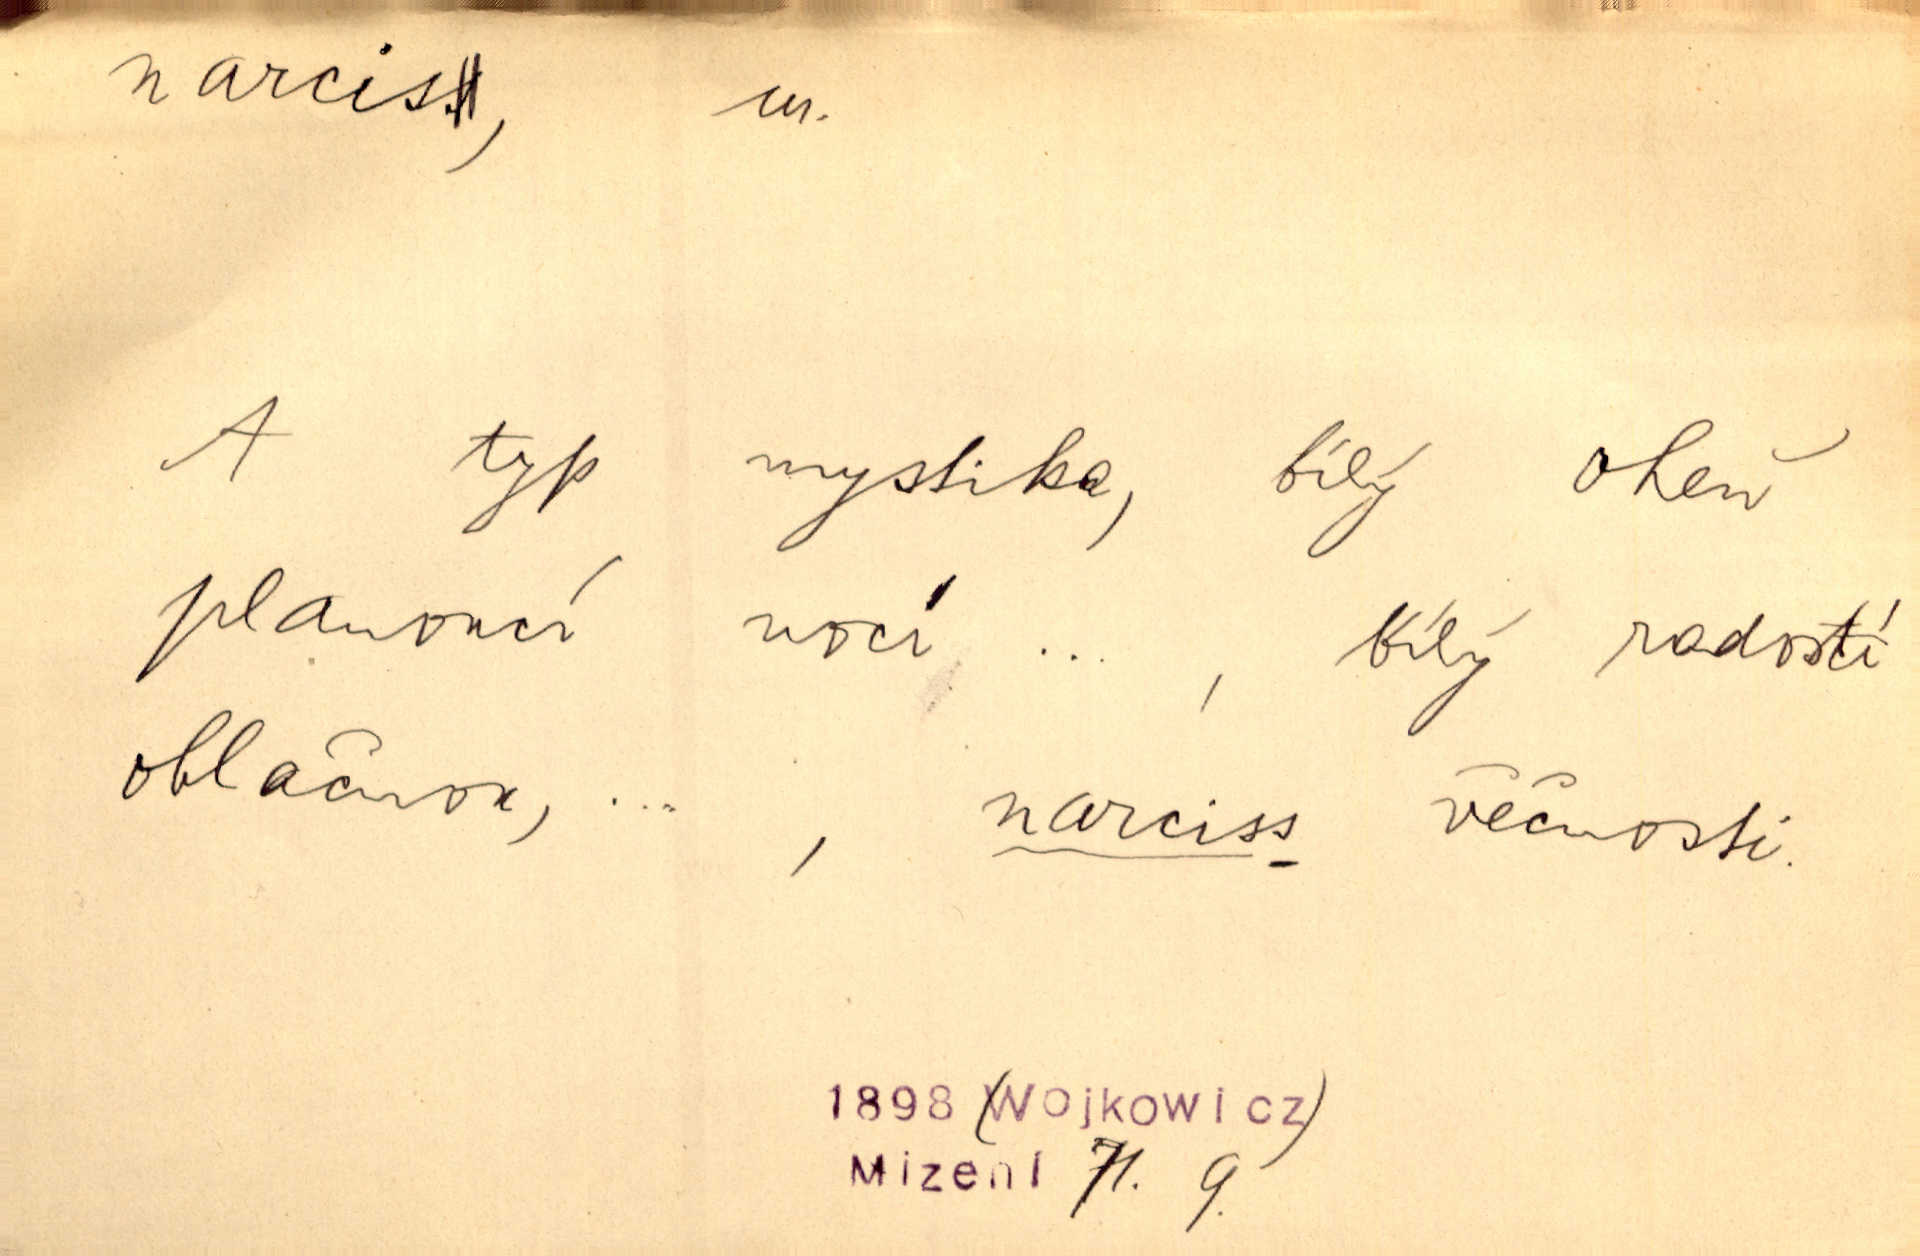 narcis, m.
A typ mystika, bílý oheň
planoucí nocí ... , bílý radostí
oblačnou, ... , narciss věčnosti.
1898 (Wojkowicz)
Mizení 71. 9.